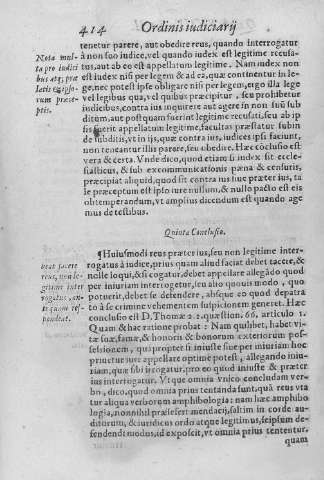 414 Ordinis iudiciarij
tenetur parere, aut obedire reus, quando interrogatur
Nota mul à non suo iudice, vel quando index est legitime recusa-
ta pro iudici tus, aut ab eo est appellatum legitime. Nam iudex non
bus atq; præ est iudex nisi per legem & ad ea, quæ continentur in le-
latis eorũpso- ge, nec potest ipse obligare nisi per legem, ergo illa lege
rum præce- vel legibus qua, vel quibus præcipitur, seu prohibetur
ptis. iudicibus, contra ius inquirere aut agere in non suũ sub
ditum, aut postquam fuerint legitime recusati, seu ab ip
sis fuerit appellatum legitime, facultas præstatur subin
de subditis, vt in ijs, quæ contra ius, iudices ipsi faciunt,
non teneantur illis parere, seu obedire. Hæc cõclusio est
vera & certa. Vnde dico, quod etiam si index sit eccle-
siasticus, & sub excommunicationis pœna & censuris,
præcipiat aliquid, quod sit contra ius siue præter ius, ta
le præceptum est ipso iure nullum, & nullo pacto est eis
obtemperandum, vt amplius dicendum est quando age
mus de testibus.
Quinta Conclusio.
¶Huiusmodi reus præter ius, seu non legitime inter-
rogatus à iudice, prius quam aliud faciat debet tacere, &
reus, non le- nolle loqui, & si cogatur, debet appellare allegãdo quod
gitime inter per iniuriam interrogetur, seu alio quouis modo, quo
rogatus, an- potuerit, debet se defendere, absque eo quod depatra
te quam res- to à se crimine vehementem suspicionem generet. Hæc
pondeat. conclusio est D. Thomæ 2.2. quæstion. 66, articulo 1.
Quam & hac ratione probat: Nam quilibet, habet vi-
tæ suæ, famæ, & honoris & bonorum exteriorum pos-
sessionem, qua propter si iniuste siue per iniuriam hoc
priuetur iure appellare optime potest, allegando iniu-
riam, quæ sibi irrogatur, pro eo quod iniuste & præter
ius interrogatur. Vt que omnia vnico concludam ver-
bo, dico, quod omnia prius tentanda sunt, quã reus vta
tur aliqua verborum amphibologia: nam hæc amphibo
logia, nonnihil præseferẽ mendacij, saltim in corde au-
ditorum, & iuridicus ordo atque legitimus, seipsum de-
fendendi modus, id exposcit, vt omnia prius tententur,
quam